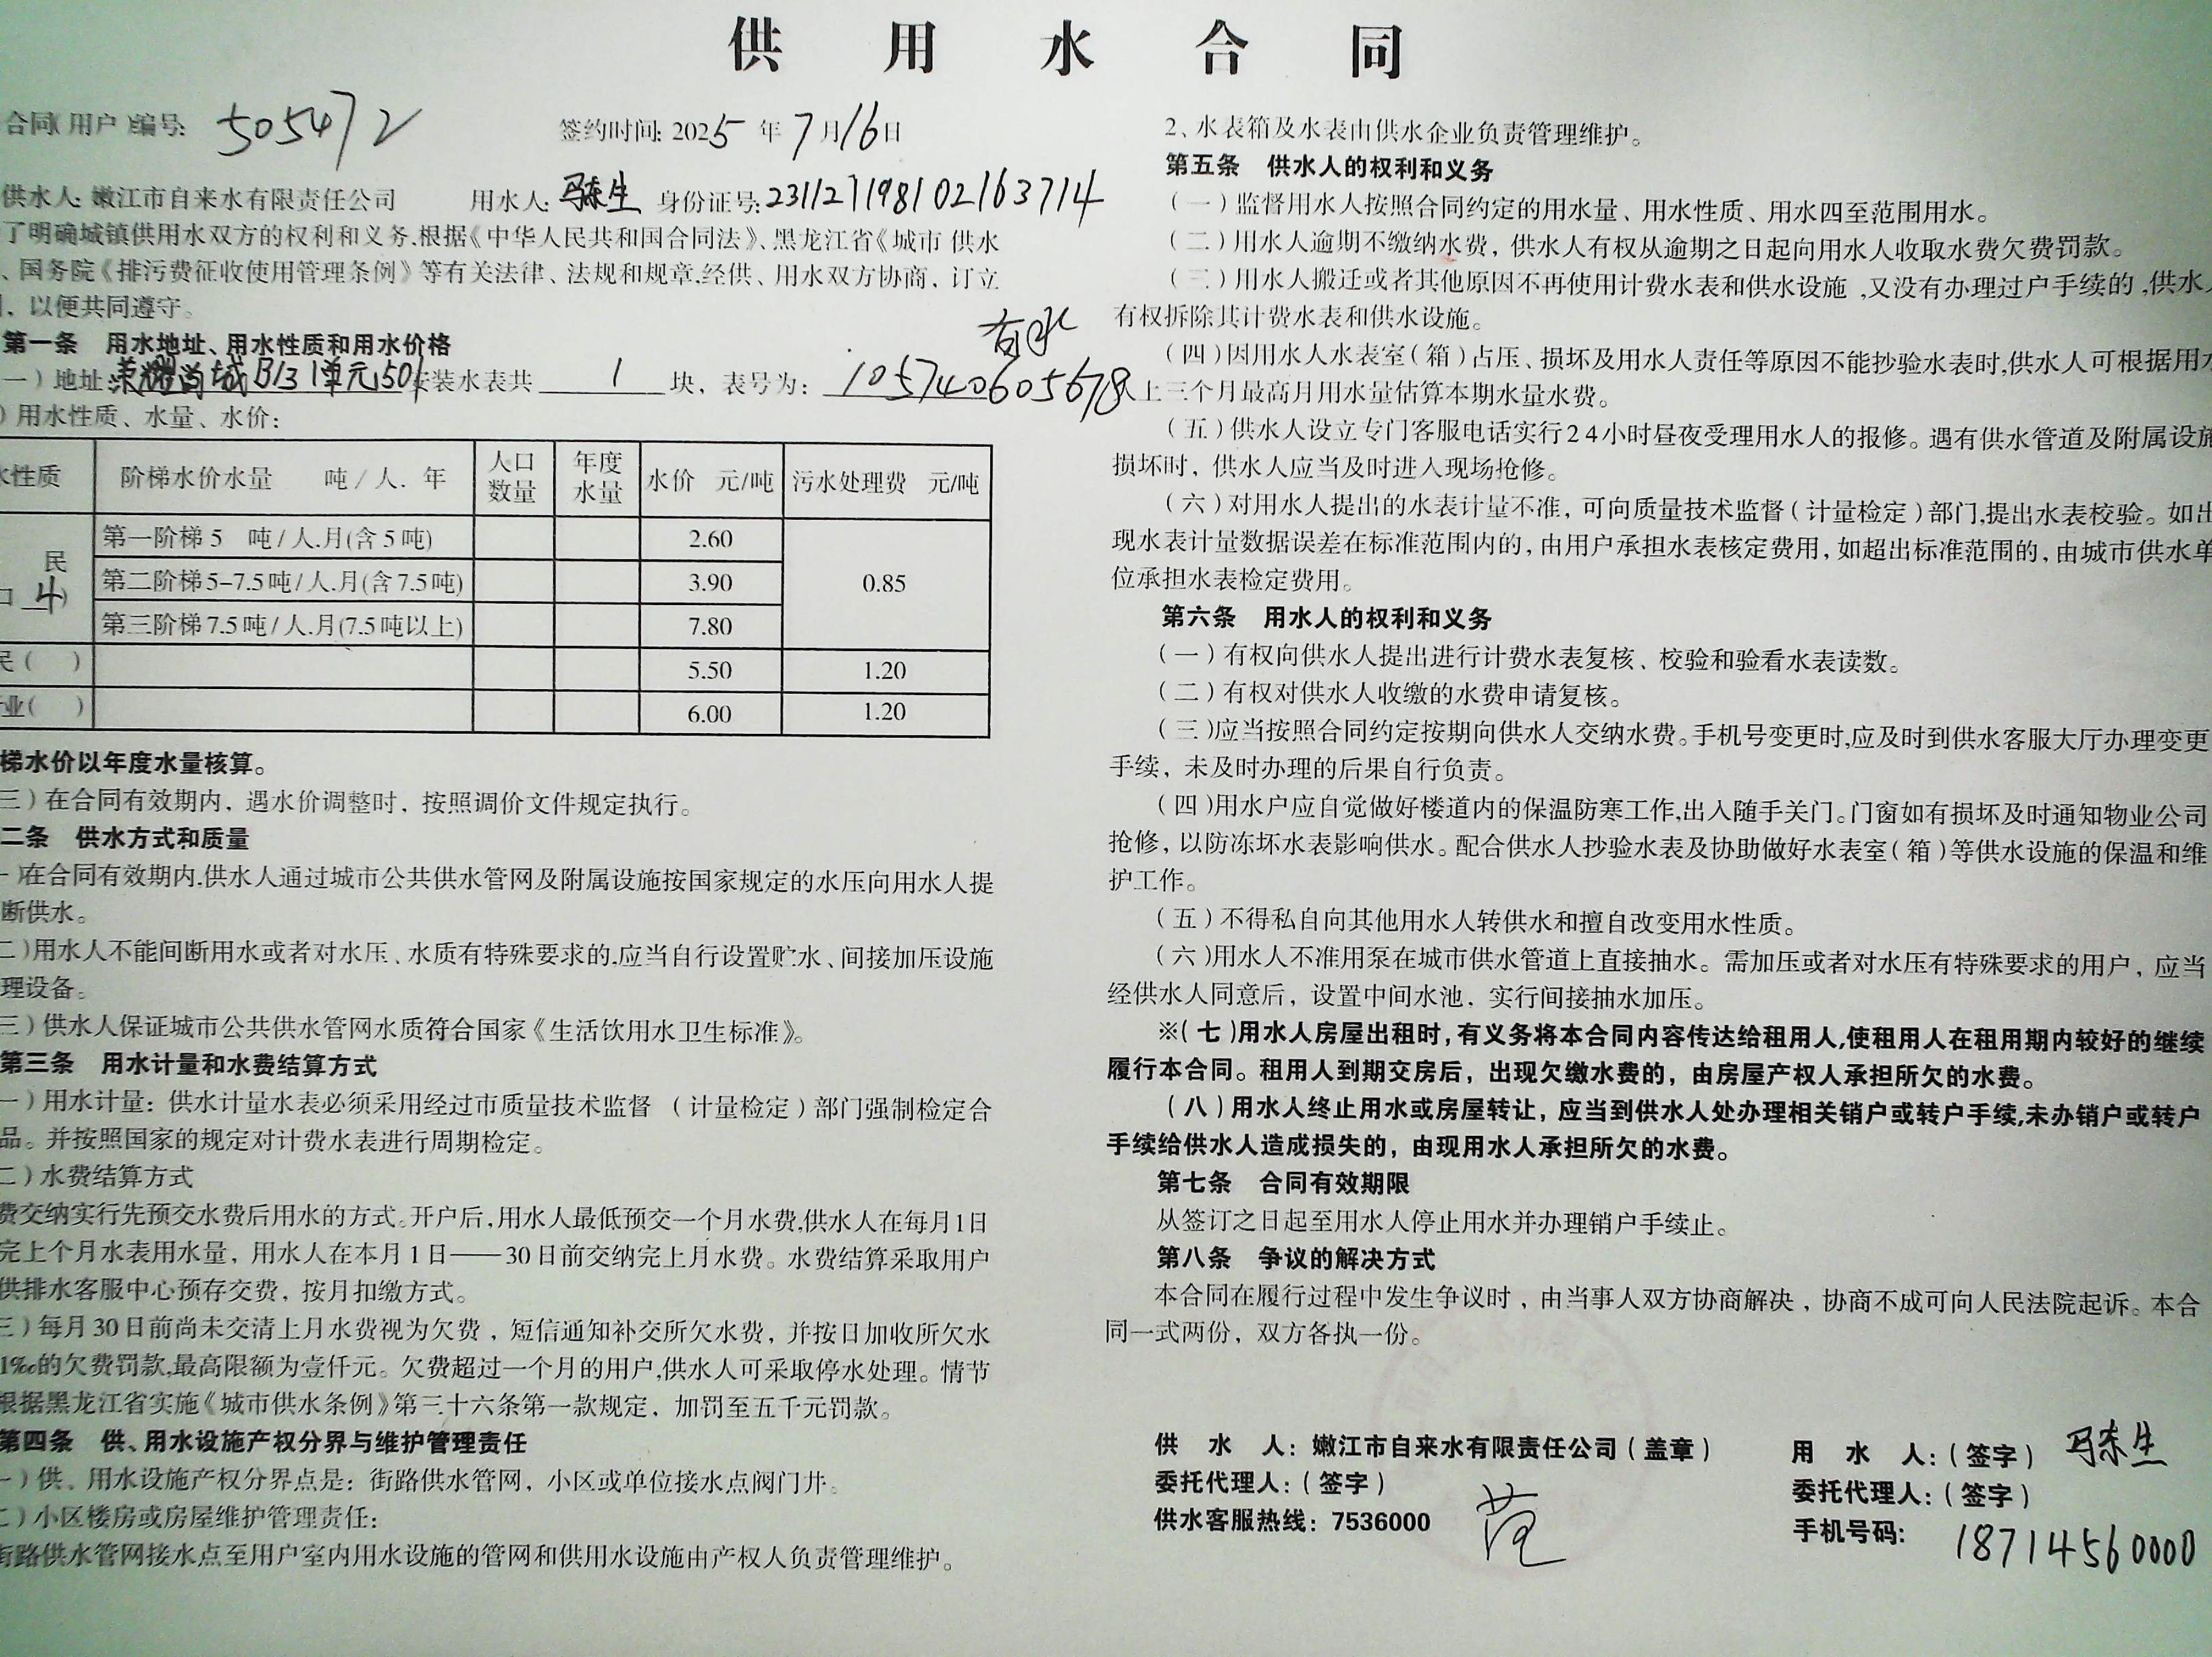 供用水合同
合同(用户)编号: 505472 签约时间: 2025年7月16日
供水人: 嫩江市自来水有限责任公司 用水人: 马东生 身份证号: 231127198102163714
了明确城镇供用水双方的权利和义务,根据《中华人民共和国合同法》、黑龙江省《城市 供水
、国务院《排污费征收使用管理条例》等有关法律、法规和规章,经供、用水双方协商，订立
，以便共同遵守。
第一条 用水地址、用水性质和用水价格
一）地址: 荣耀尚城B13 1单元501 安装水表共 1 块，表号为: 105740605678
有水
）用水性质、水量、水价：
水性质 阶梯水价水量 吨/人.年 人口数量 年度水量 水价 元/吨 污水处理费 元/吨
民
口 4）
第一阶梯 5 吨/人.月(含5吨) 2.60 0.85
第二阶梯 5-7.5吨/人.月(含7.5吨) 3.90
第三阶梯 7.5吨/人.月(7.5吨以上) 7.80
民（ ） 5.50 1.20
业（ ） 6.00 1.20
梯水价以年度水量核算。
三）在合同有效期内，遇水价调整时，按照调价文件规定执行。
二条 供水方式和质量
一)在合同有效期内,供水人通过城市公共供水管网及附属设施按国家规定的水压向用水人提
断供水。
二)用水人不能间断用水或者对水压、水质有特殊要求的,应当自行设置贮水、间接加压设施
理设备。
三）供水人保证城市公共供水管网水质符合国家《生活饮用水卫生标准》。
第三条 用水计量和水费结算方式
一）用水计量：供水计量水表必须采用经过市质量技术监督（计量检定）部门强制检定合
品。并按照国家的规定对计费水表进行周期检定。
二）水费结算方式
费交纳实行先预交水费后用水的方式。开户后,用水人最低预交一个月水费,供水人在每月1日
完上个月水表用水量，用水人在本月1日——30日前交纳完上月水费。水费结算采取用户
供排水客服中心预存交费，按月扣缴方式。
三）每月30日前尚未交清上月水费视为欠费，短信通知补交所欠水费，并按日加收所欠水
1‰的欠费罚款,最高限额为壹仟元。欠费超过一个月的用户,供水人可采取停水处理。情节
根据黑龙江省实施《城市供水条例》第三十六条第一款规定，加罚至五千元罚款。
第四条 供、用水设施产权分界与维护管理责任
一）供、用水设施产权分界点是：街路供水管网，小区或单位接水点阀门井。
二）小区楼房或房屋维护管理责任：
街路供水管网接水点至用户室内用水设施的管网和供用水设施由产权人负责管理维护。
2、水表箱及水表由供水企业负责管理维护。
第五条 供水人的权利和义务
（一）监督用水人按照合同约定的用水量、用水性质、用水四至范围用水。
（二）用水人逾期不缴纳水费，供水人有权从逾期之日起向用水人收取水费欠费罚款。
（三）用水人搬迁或者其他原因不再使用计费水表和供水设施，又没有办理过户手续的,供水人
有权拆除其计费水表和供水设施。
（四）因用水人水表室（箱）占压、损坏及用水人责任等原因不能抄验水表时,供水人可根据用水
人上三个月最高月用水量估算本期水量水费。
（五）供水人设立专门客服电话实行24小时昼夜受理用水人的报修。遇有供水管道及附属设施
损坏时，供水人应当及时进入现场抢修。
（六）对用水人提出的水表计量不准，可向质量技术监督（计量检定）部门,提出水表校验。如出
现水表计量数据误差在标准范围内的，由用户承担水表核定费用，如超出标准范围的，由城市供水单
位承担水表检定费用。
第六条 用水人的权利和义务
（一）有权向供水人提出进行计费水表复核、校验和验看水表读数。
（二）有权对供水人收缴的水费申请复核。
（三)应当按照合同约定按期向供水人交纳水费。手机号变更时,应及时到供水客服大厅办理变更
手续，未及时办理的后果自行负责。
（四)用水户应自觉做好楼道内的保温防寒工作,出入随手关门。门窗如有损坏及时通知物业公司
抢修，以防冻坏水表影响供水。配合供水人抄验水表及协助做好水表室（箱）等供水设施的保温和维
护工作。
（五）不得私自向其他用水人转供水和擅自改变用水性质。
（六)用水人不准用泵在城市供水管道上直接抽水。需加压或者对水压有特殊要求的用户，应当
经供水人同意后，设置中间水池，实行间接抽水加压。
※（七)用水人房屋出租时，有义务将本合同内容传达给租用人,使租用人在租用期内较好的继续
履行本合同。租用人到期交房后，出现欠缴水费的，由房屋产权人承担所欠的水费。
（八）用水人终止用水或房屋转让，应当到供水人处办理相关销户或转户手续,未办销户或转户
手续给供水人造成损失的，由现用水人承担所欠的水费。
第七条 合同有效期限
从签订之日起至用水人停止用水并办理销户手续止。
第八条 争议的解决方式
本合同在履行过程中发生争议时，由当事人双方协商解决，协商不成可向人民法院起诉。本合
同一式两份，双方各执一份。
供 水 人：嫩江市自来水有限责任公司（盖章） 用 水 人：（签字） 马东生
委托代理人：（签字） 范 委托代理人：（签字）
供水客服热线：7536000 手机号码: 18714560000